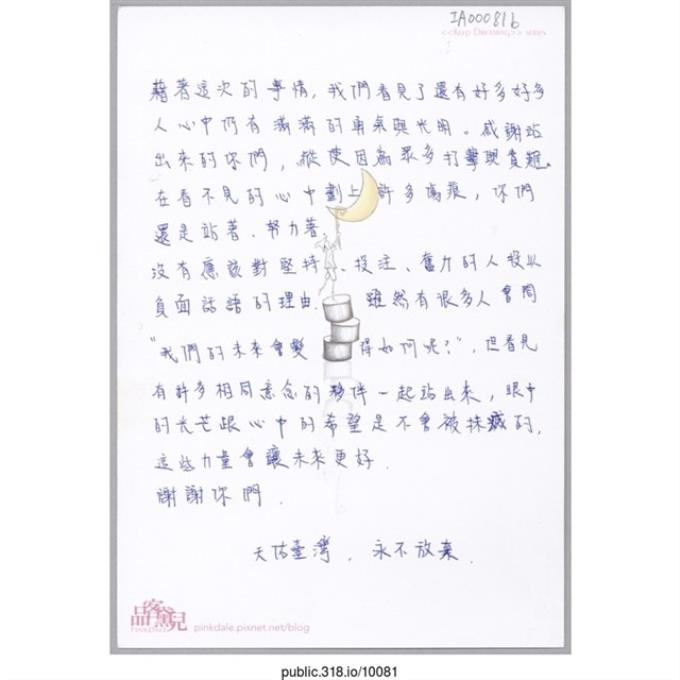 IA000816
<<Keep Dreaming>> series
藉著這次的事情，我們看見了還有好多好多
人心中仍有滿滿的勇氣與光明。感謝站
出來的你們，縱使因為眾多打擊與責難、
在看不見的心中劃上許多傷痕，你們
還是站著、努力著。
沒有應該對堅持、投注、奮力的人投以
負面話語的理由. 雖然有很多人會問
"我們的未來會變得如何呢?"，但看見
有許多相同意念的夥伴一起站出來，眼中
的光芒跟心中的希望是不會被抹滅的.
這些力量會讓未來更好.
謝謝你們.
天佑臺灣. 永不放棄.
品客黛兒
PINKDALE
pinkdale.pixnet.net/blog
public.318.io/10081